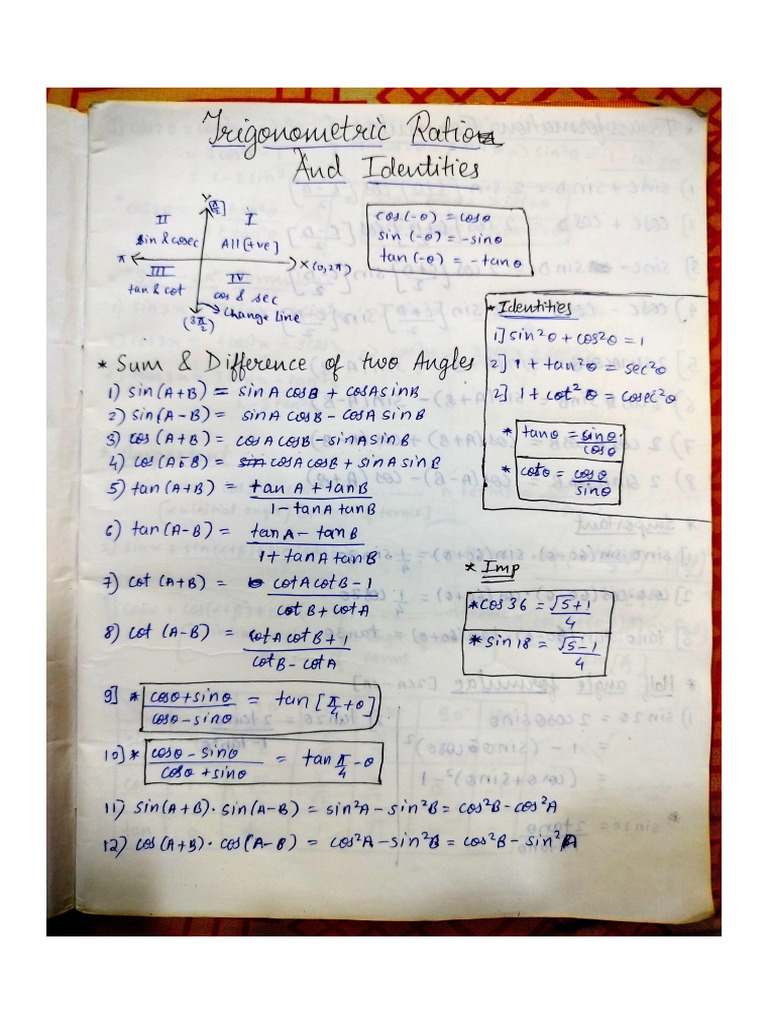 Trigonometric Ratio
And Identities
Y [π/2]
II I
sin & cosec All [+ve]
π X (0, 2π)
III IV
tan & cot cos & sec
(3π/2) Change line
cos(-θ) = cosθ
sin (-θ) = -sinθ
tan (-θ) = -tanθ
* Identities
1] sin²θ + cos²θ = 1
2] 1 + tan²θ = sec²θ
2] 1 + cot²θ = cosec²θ
* tanθ = sinθ/cosθ
* cotθ = cosθ/sinθ
* Sum & Difference of two Angles
1) sin(A+B) = sinA cosB + cosA sinB
2) sin(A-B) = sinA cosB - cosA sinB
3) cos(A+B) = cosA cosB - sinA sinB
4) cos(A-B) = cosA cosB + sinA sinB
5) tan(A+B) = tan A + tanB / 1 - tanA tanB
6) tan(A-B) = tanA - tanB / 1 + tanA tanB
7) cot (A+B) = cotA cotB - 1 / cotB + cotA
8) cot (A-B) = cotA cotB + 1 / cotB - cotA
* Imp
* cos 36 = √5+1/4
* sin 18 = √5-1/4
9] * cosθ + sinθ / cosθ - sinθ = tan [π/4 + θ]
10] * cosθ - sinθ / cosθ + sinθ = tan π/4 - θ
11) sin(A+B) · sin(A-B) = sin²A - sin²B = cos²B - cos²A
12) cos(A+B) · cos(A-B) = cos²A - sin²B = cos²B - sin²A